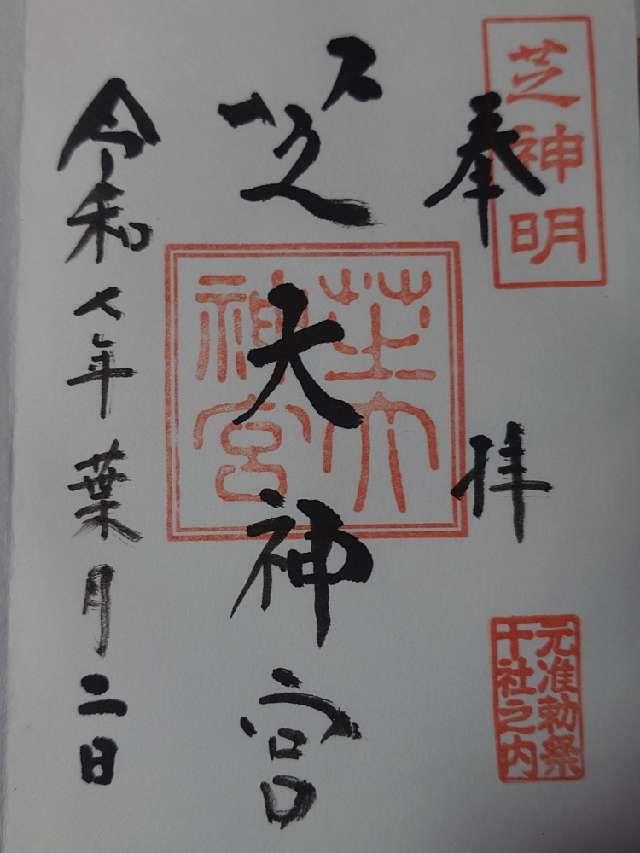 芝神明
奉拝
元准勅祭
十社之内
芝大神宮
芝大
神宮
令和七年葉月二日